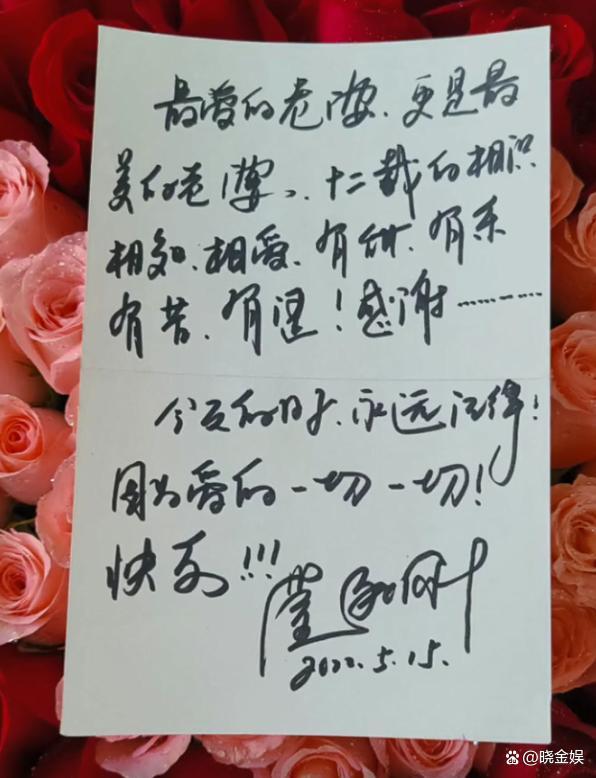 最爱的老婆、更是最
美的老婆、十二载的相识
相知、相爱、有甜、有乐
有苦、有涩！感谢………
今天的日子、永远记得！
因为爱的一切一切！
快乐!!!
2022.5.15.
@晓金娱